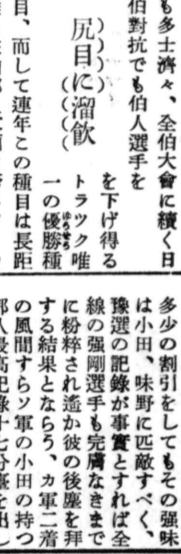 も多士濟々、全伯大會に續く日
伯對抗でも伯人選手を
尻目に溜飲
を下げ得る
トラツク唯
一の優勝種
ゆうせう
目、而して連年この種目は長距
多少の割引をしてもその强味
は小田、味野に匹敵すべく、
豫選の記錄が事實とすれば全
線の强剛選手も完膚なきまで
に粉粹され遙か彼の後塵を拜
する結果とならう、カ軍二着
の風間すらソ軍の小田の持つ